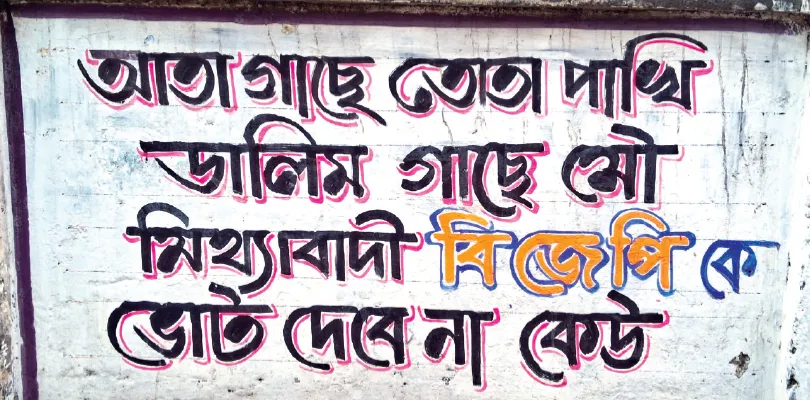 আতা গাছে তোতা পাখি
ডালিম গাছে মৌ
মিথ্যাবাদী বিজেপি কে
ভোট দেবে না কেউ